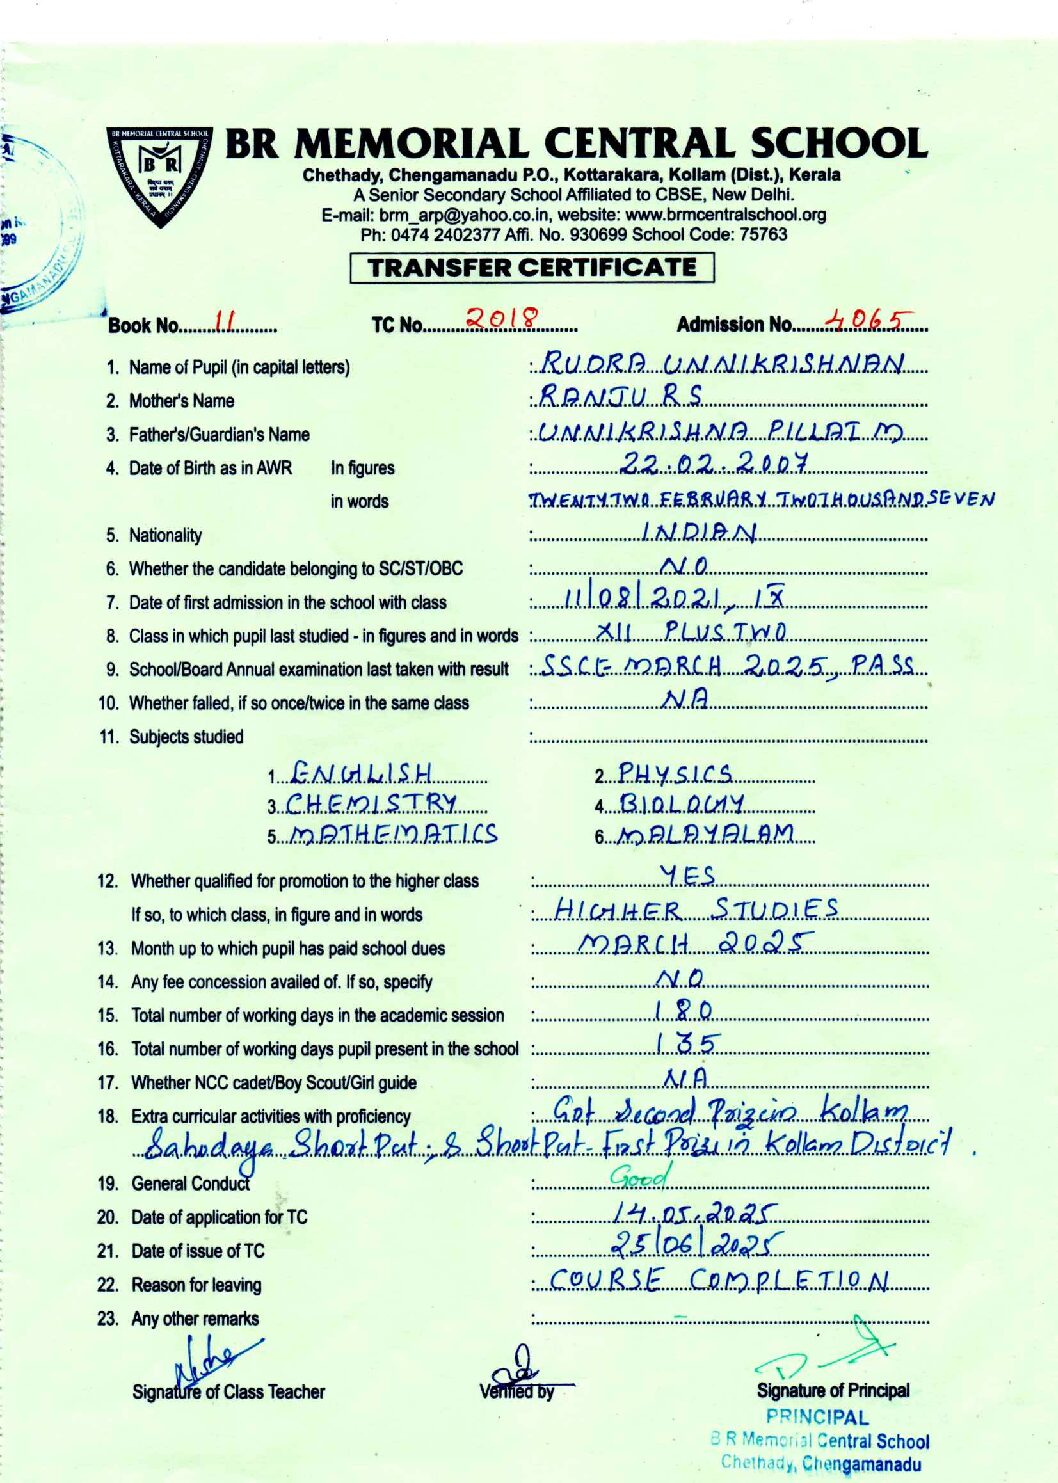 BR MEMORIAL CENTRAL SCHOOL
BR MEMORIAL CENTRAL SCHOOL
B R
Chethady, Chengamanadu P.O., Kottarakara, Kollam (Dist.), Kerala
A Senior Secondary School Affiliated to CBSE, New Delhi.
E-mail: brm_arp@yahoo.co.in, website: www.brmcentralschool.org
Ph: 0474 2402377 Affi. No. 930699 School Code: 75763
TRANSFER CERTIFICATE
Book No. 11 TC No. 2018 Admission No. 4065
1. Name of Pupil (in capital letters) : RUDRA UNNIKRISHNAN
2. Mother's Name : RANJU R S
3. Father's/Guardian's Name : UNNIKRISHNA PILLAI M
4. Date of Birth as in AWR In figures : 22.02.2007
in words TWENTY TWO FEBRUARY TWO THOUSAND SEVEN
5. Nationality : INDIAN
6. Whether the candidate belonging to SC/ST/OBC : NO
7. Date of first admission in the school with class : 11/08/2021, IX
8. Class in which pupil last studied - in figures and in words : XII PLUS TWO
9. School/Board Annual examination last taken with result : SSCE MARCH 2025, PASS
10. Whether falled, if so once/twice in the same class : NA
11. Subjects studied :
1. ENGLISH 2. PHYSICS
3. CHEMISTRY 4. BIOLOGY
5. MATHEMATICS 6. MALAYALAM
12. Whether qualified for promotion to the higher class : YES
If so, to which class, in figure and in words : HIGHER STUDIES
13. Month up to which pupil has paid school dues : MARCH 2025
14. Any fee concession availed of. If so, specify : NO
15. Total number of working days in the academic session : 180
16. Total number of working days pupil present in the school : 135
17. Whether NCC cadet/Boy Scout/Girl guide : NA
18. Extra curricular activities with proficiency : Got Second Prize in Kollam
Sahodaya Short Put ; & Short Put - First Prize in Kollam District.
19. General Conduct : Good
20. Date of application for TC : 14.05.2025
21. Date of issue of TC : 25/06/2025
22. Reason for leaving : COURSE COMPLETION
23. Any other remarks : –
Signature of Class Teacher Verified by Signature of Principal
PRINCIPAL
B R Memorial Central School
Chethady, Chengamanadu